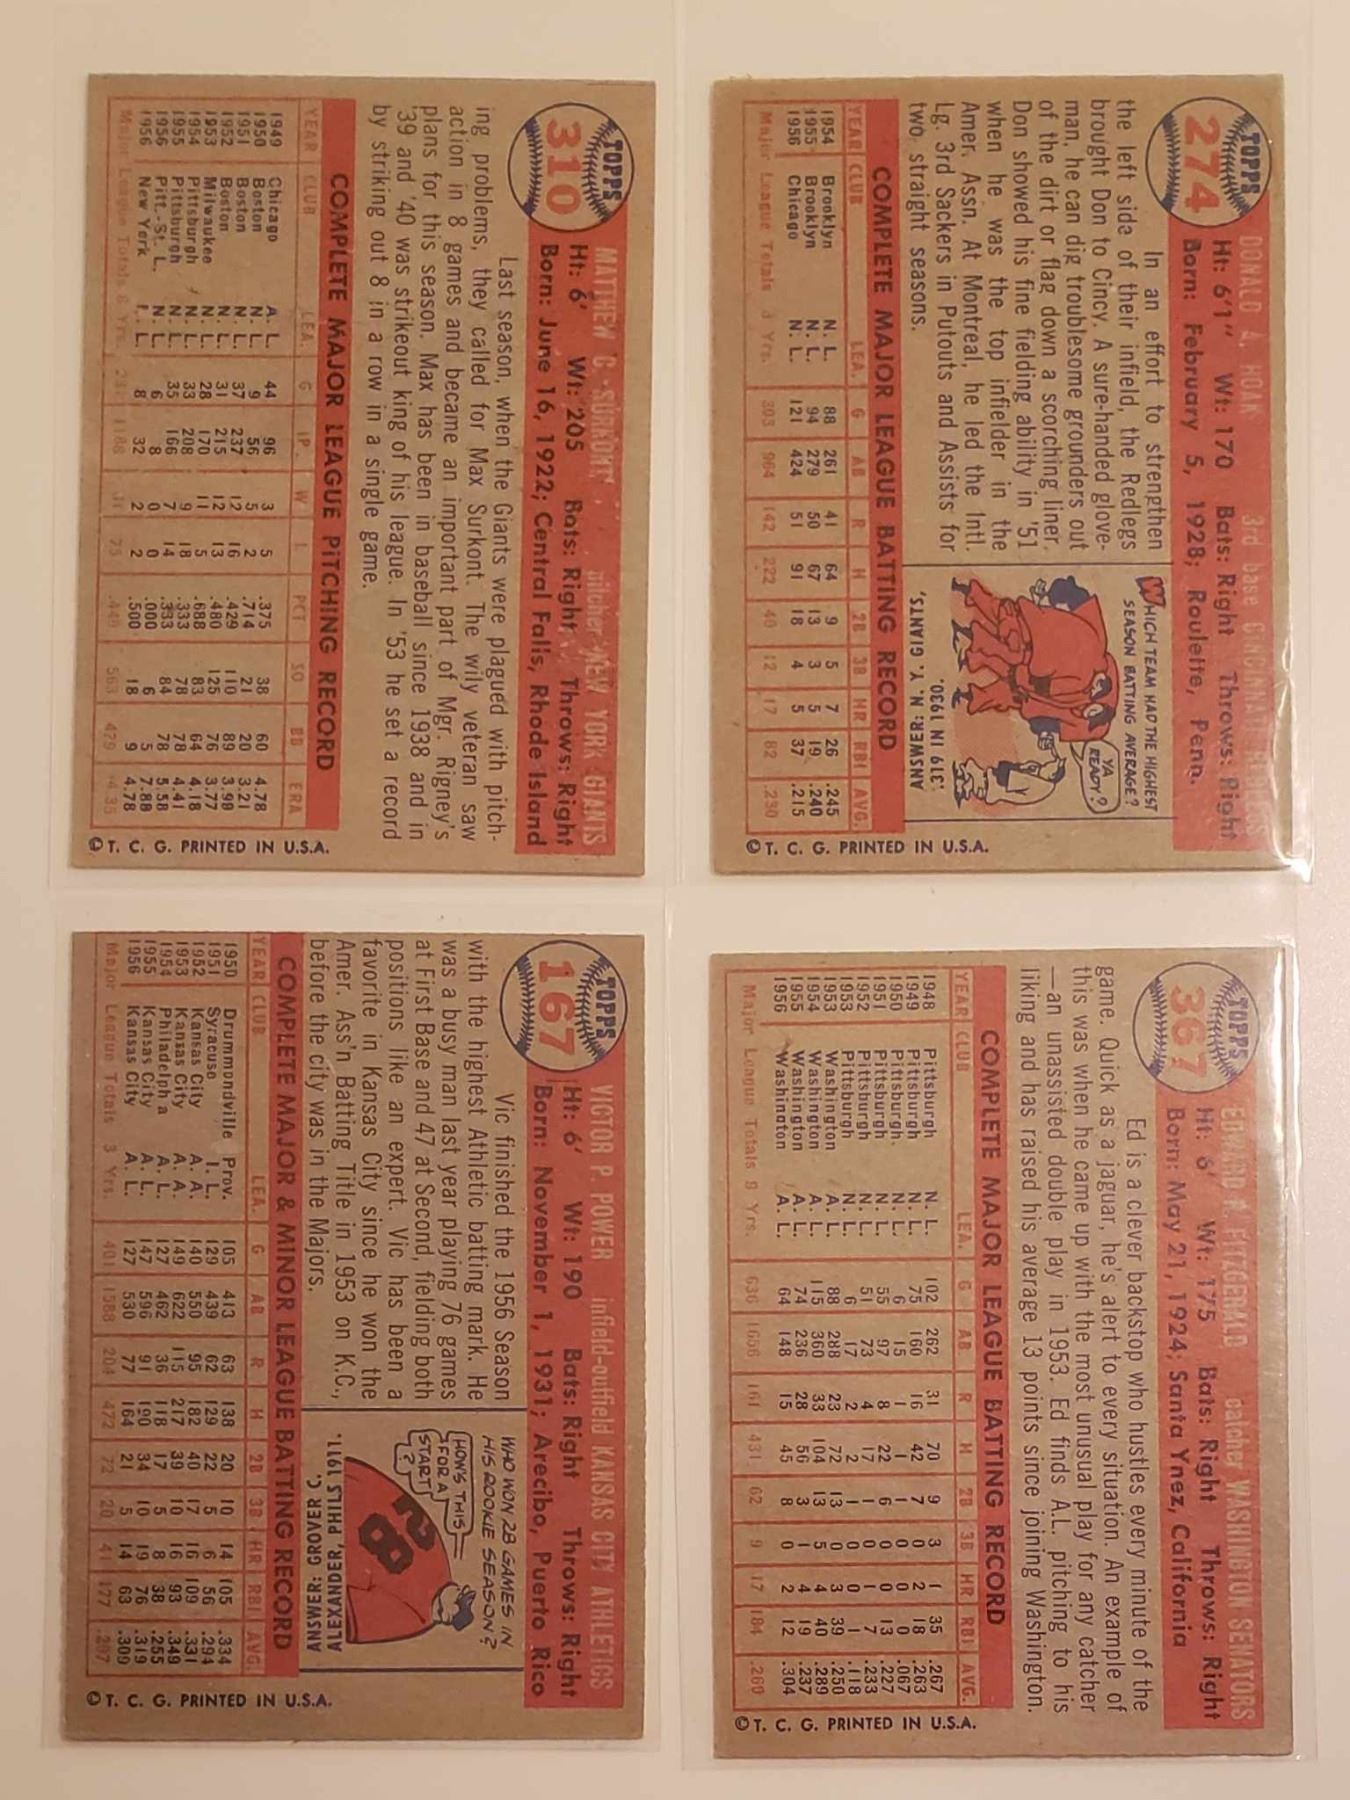 TOPPS
310
MATHEW C. SURKONT pitcher NEW YORK GIANTS
Ht: 6' Wt: 205 Bats: Right Throws: Right
Born: June 16, 1922; Central Falls, Rhode Island
Last season, when the Giants were plagued with pitch-
ing problems, they called for Max Surkont. The wily veteran saw
action in 8 games and became an important part of Mgr. Rigney's
plans for this season. Max has been in baseball since 1938 and in
'39 and '40 was strikeout king of his league. In '53 he set a record
by striking out 8 in a row in a single game.
COMPLETE MAJOR LEAGUE PITCHING RECORD
YEAR CLUB LEA. G IP W L PCT SO BB ERA
1949 Chicago A. L. 44 96 3 5 .375 38 60 4.78
1950 Boston N. L. 9 56 5 2 .714 21 20 3.21
1951 Boston N. L. 37 237 12 16 .429 110 89 3.99
1952 Boston N. L. 31 215 12 13 .480 125 76 3.77
1953 Milwaukee N. L. 28 170 11 5 .688 83 64 4.18
1954 Pittsburgh N. L. 33 208 9 18 .333 78 78 4.41
1955 Pittsburgh N. L. 35 166 7 14 .333 84 78 5.58
1956 Pitt.-St. L. N. L. 6 8 0 0 .000 6 5 7.88
1956 New York N. L. 8 32 2 2 .500 18 9 4.78
Major League Totals 8 Yrs. 1188 75 563 479
© T. C. G. PRINTED IN U.S.A.
TOPPS
274
DONALD A. HOAK 3rd base CINCINNATI REDLEGS
Ht: 6'1" Wt: 170 Bats: Right Throws: Right
Born: February 5, 1928; Roulette, Penn.
In an effort to strengthen
the left side of their infield, the Redlegs
brought Don to Cincy. A sure-handed glove-
man, he can dig troublesome grounders out
of the dirt or flag down a scorching liner.
Don showed his fine fielding ability in '51
when he was the top infielder in the
Amer. Assn. At Montreal, he led the Intl.
Lg. 3rd Sackers in Putouts and Assists for
two straight seasons.
WHICH TEAM HAD THE HIGHEST
SEASON BATTING AVERAGE?
YA
READY?
ANSWER: N. Y. GIANTS,
.319 IN 1930.
COMPLETE MAJOR LEAGUE BATTING RECORD
YEAR CLUB LEA. G AB R H 2B 3B HR RBI AVG.
1954 Brooklyn N. L. 88 261 41 64 9 5 7 26 .245
1955 Brooklyn N. L. 94 279 50 67 13 3 5 19 .240
1956 Chicago N. L. 121 424 51 91 18 4 5 37 .215
Major League Totals 3 Yrs. 303 964 142 222 40 12 17 82 .230
© T. C. G. PRINTED IN U.S.A.
TOPPS
167
VICTOR P. POWER infield-outfield KANSAS CITY ATHLETICS
Ht: 6' Wt: 190 Bats: Right Throws: Right
Born: November 1, 1931; Arecibo, Puerto Rico
Vic finished the 1956 Season
with the highest Athletic batting mark. He
was a busy man last year playing 76 games
at First Base and 47 at Second, fielding both
positions like an expert. Vic has been a
favorite in Kansas City since he won the
Amer. Ass'n Batting Title in 1953 on K.C.,
before the city was in the Majors.
WHO WON 28 GAMES IN
HIS ROOKIE SEASON?
HOW'S THIS
FOR A
START?
28
ANSWER: GROVER C.
ALEXANDER, PHILS 1911.
COMPLETE MAJOR & MINOR LEAGUE BATTING RECORD
YEAR CLUB LEA. G AB R H 2B 3B HR RBI AVG.
1950 Drummondville Prov. 105 413 63 138 20 10 14 105 .334
1951 Syracuse I. L. 129 439 62 129 22 5 6 56 .294
1952 Kansas City A. A. 140 550 95 182 40 17 16 109 .331
1953 Kansas City A. A. 149 622 115 217 39 10 16 93 .349
1954 Philadelph a A. L. 127 462 36 118 17 5 8 38 .255
1955 Kansas City A. L. 147 596 91 190 34 10 19 76 .319
1956 Kansas City A. L. 127 530 77 164 21 5 14 63 .309
Major League Totals 3 Yrs. 401 1588 204 472 72 20 41 177 .297
© T. C. G. PRINTED IN U.S.A.
TOPPS
367
EDWARD R. FITZGERALD catcher WASHINGTON SENATORS
Ht: 6' Wt: 175 Bats: Right Throws: Right
Born: May 21, 1924; Santa Ynez, California
Ed is a clever backstop who hustles every minute of the
game. Quick as a jaguar, he's alert to every situation. An example of
this was when he came up with the most unusual play for any catcher
—an unassisted double play in 1953. Ed finds A.L. pitching to his
liking and has raised his average 13 points since joining Washington.
COMPLETE MAJOR LEAGUE BATTING RECORD
YEAR CLUB LEA. G AB R H 2B 3B HR RBI AVG.
1948 Pittsburgh N. L. 102 262 31 70 9 3 1 35 .267
1949 Pittsburgh N. L. 75 160 16 42 7 0 2 18 .263
1950 Pittsburgh N. L. 6 15 1 1 1 0 0 0 .067
1951 Pittsburgh N. L. 55 97 8 22 6 0 0 13 .227
1952 Pittsburgh N. L. 51 73 4 17 1 0 1 7 .233
1953 Pittsburgh N. L. 6 17 2 2 1 0 0 1 .118
1953 Washington A. L. 88 288 23 72 13 0 3 39 .250
1954 Washington A. L. 115 360 33 104 13 5 4 40 .289
1955 Washington A. L. 74 236 28 56 3 1 4 19 .237
1956 Washington A. L. 64 148 15 45 8 0 2 12 .304
Major League Totals 9 Yrs. 636 1656 161 431 62 9 17 184 .260
© T. C. G. PRINTED IN U.S.A.